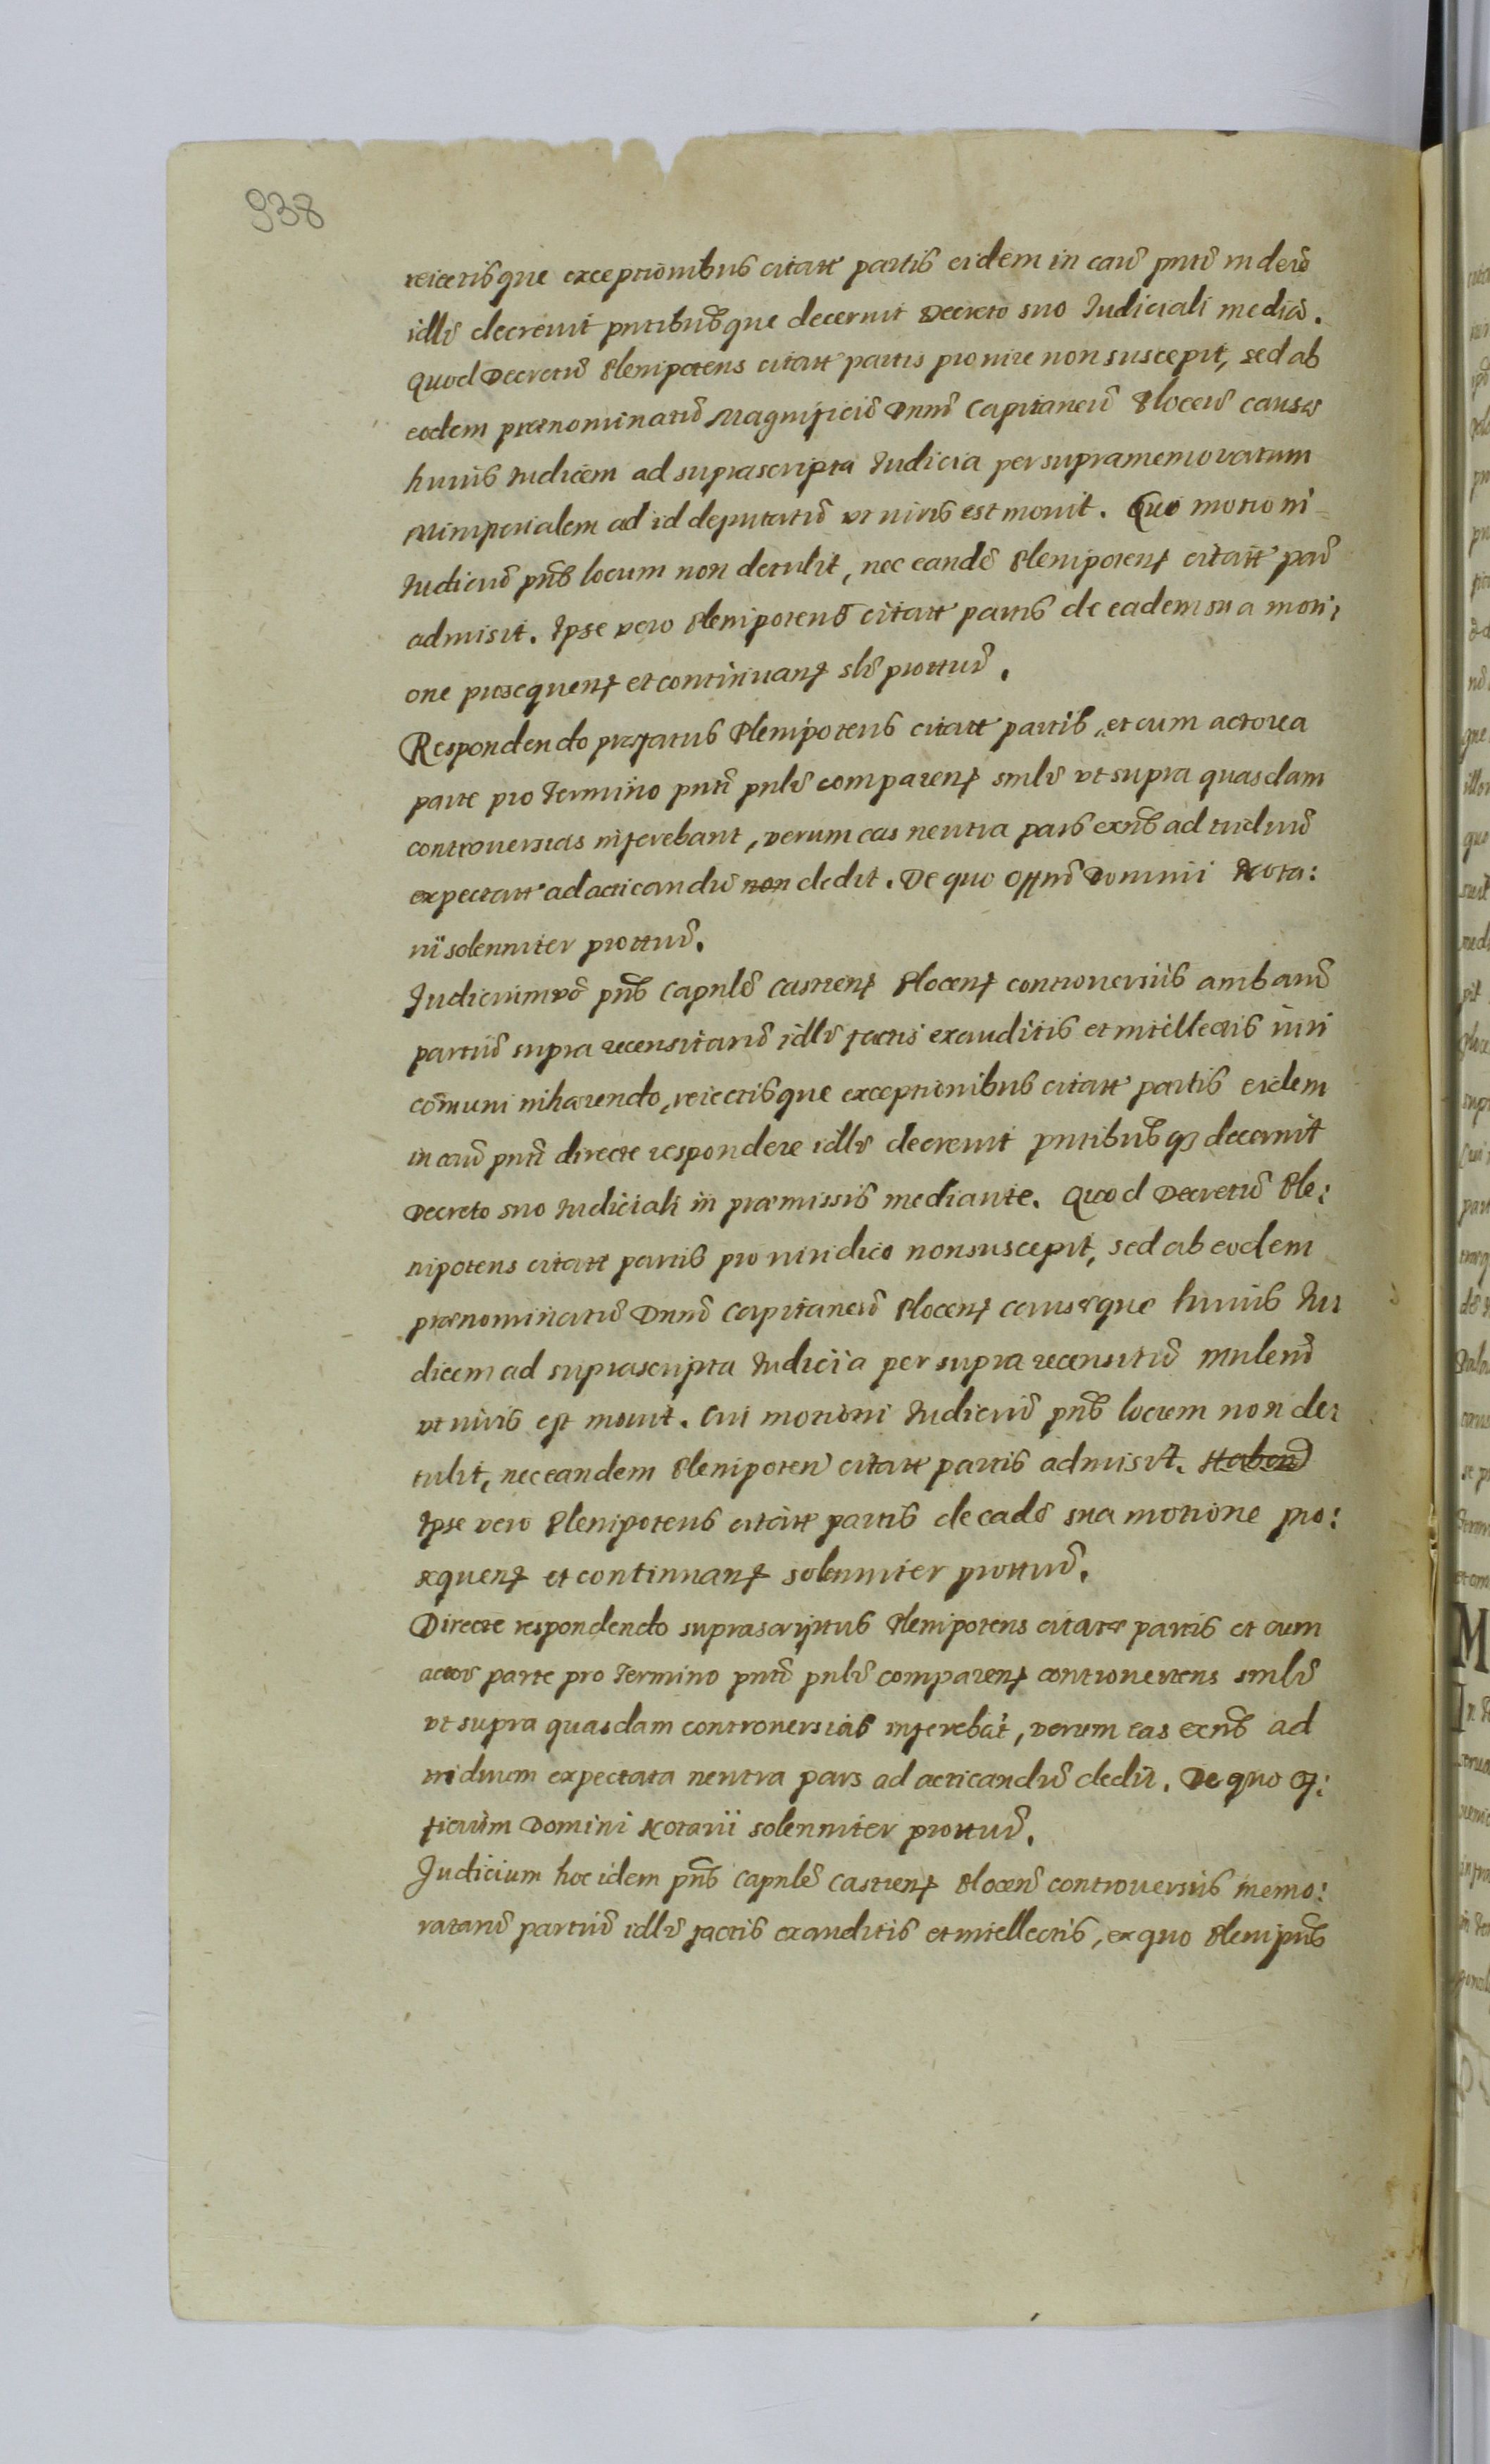 938
reiectisque exceptionibus citatt partis eidem in cau pnti in deiu
idlr decreuit pntibusque decernit Decreto suo Iudiciali media.
Quod Decretu Plenipotens citatt partis pro iure non suscepit, sed ab
eodem prænominatu Magnificu Dnm Capitaneu Plocen causæ
huius Iudicem ad suprascripta Iudicia per supramemoratum
Minperialem ad id deputatu vt iuris est mouit. Quo motioni
Iudiciu pns locum non detulit, nec eande Plenipotens citatt par
admisit. Ipse vero Plenipotens citatt partis de eadem sua moti:
one prosequens et continuans slr prottur.
Respondendo præfatus Plenipotens citatt partis, et cum actorea
parte pro termino pnti pnlr comparens smlr vt supra quasdam
controuersias inferebant, verum eas neutra pars exns ad triduu
expectatt ad acticandu non dedit. De quo Offm Domini Nota:
rii solenniter prottur.
Iudicium vo pns Capnle Castrens Plocens controuersiis ambaru
partiu supra recensitaru idlr factis exauditis et intellectis iuri
comuni inhærendo, reiectisque exceptionibus citatt partis eidem
in cau pnti directe respondere idlr decreuit pntibusq3 decernit
Decreto suo Iudiciali in præmissis mediante. Quod Decretu Ple:
nipotens citatt partis pro iuridico non suscepit, sed ab eodem
prænominatu Dnm Capitaneu Plocens causæque huius Iu
dicem ad suprascripta Iudicia per supra recensitu Mnlem
vt iuris est mouit. Cui motioni Iudiciu pns locum non de:
tulit, nec eandem Plenipoten citatt partis admisit.
Ipse vero Plenipotens citatt partis de eade sua motione pro:
sequens et continuans solenniter prottur.
Directe respondendo suprascriptus Plenipotens citatt partis et cum
actor parte pro termino pnti pnlr comparens controuertens smlr
vt supra quasdam controuersias inferebat, verum eas exns ad
triduum expectata neutra pars ad acticandu dedit. De quo Of:
ficium Domini Notarii solenniter prottur.
Iudicium hoc idem pns Capnle Castrens Plocen controuersiis memo:
rataru partiu idlr factis exauditis et intellectis, ex quo Plenipns